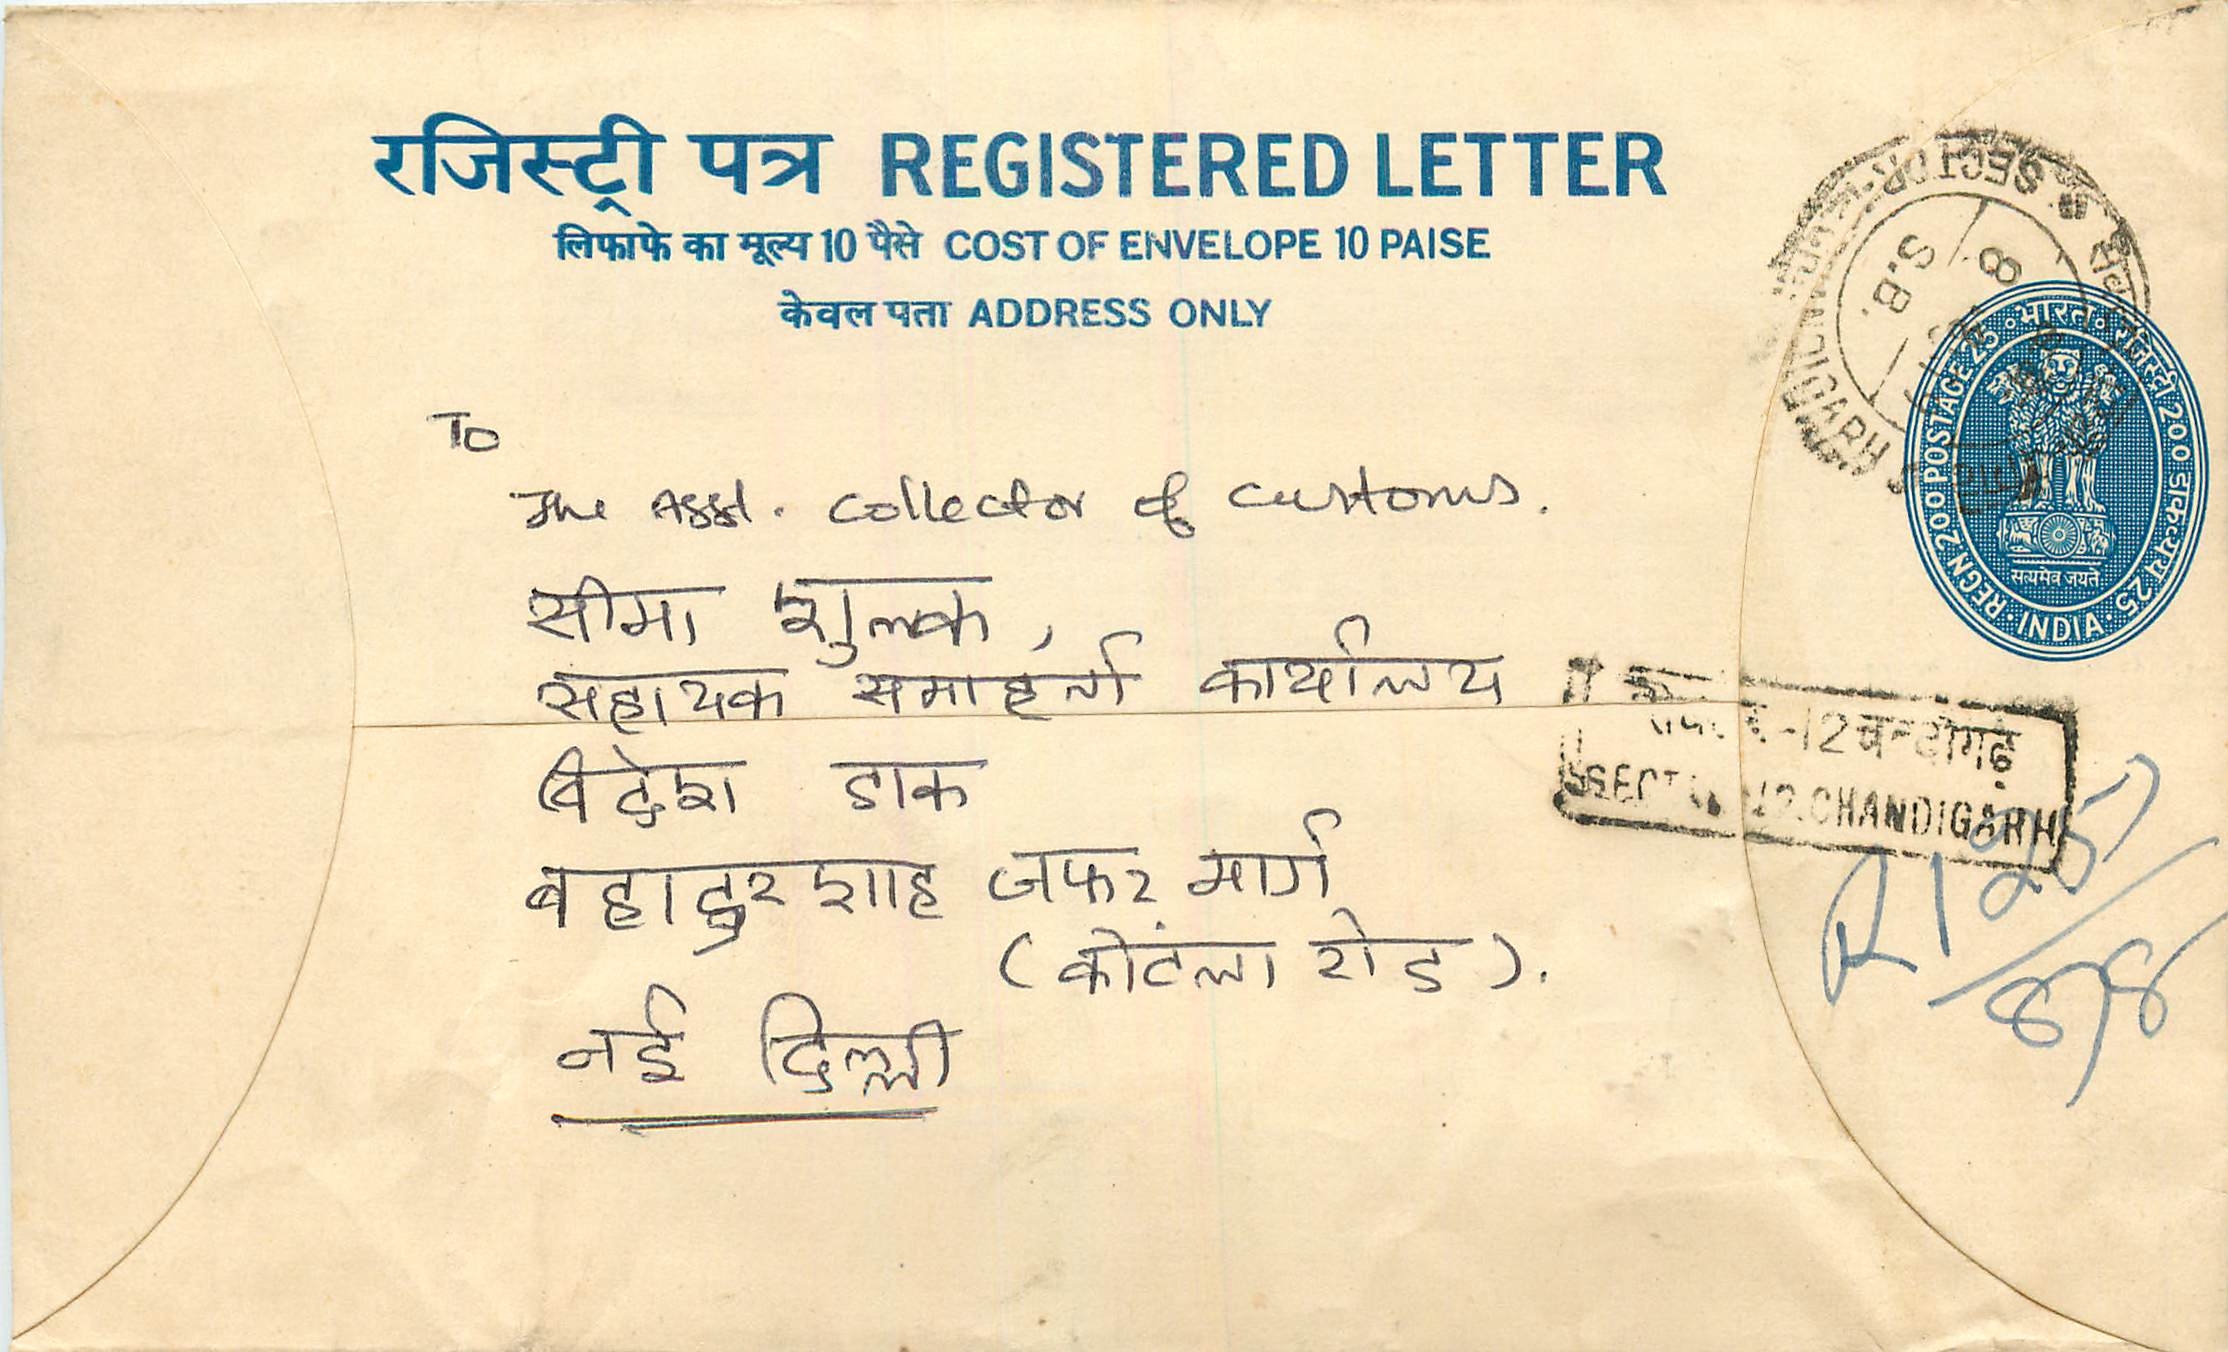 रजिस्ट्री पत्र REGISTERED LETTER
लिफाफे का मूल्य 10 पैसे COST OF ENVELOPE 10 PAISE
केवल पता ADDRESS ONLY
SECTOR CHANDIGARH
S.B.
8
भारत रजिस्ट्री 200 डाकद्रव्य 25
REGN 200 POSTAGE 25
सत्यमेव जयते
INDIA
To
The Asst. Collector of Customs.
सीमा शुल्क,
सहायक समाहर्ता कार्यालय
विदेश डाक
बहादुर शाह जफर मार्ग
(कोटला रोड).
नई दिल्ली
-12 चन्डीगढ़
SECTOR 12 CHANDIGARH
R 125